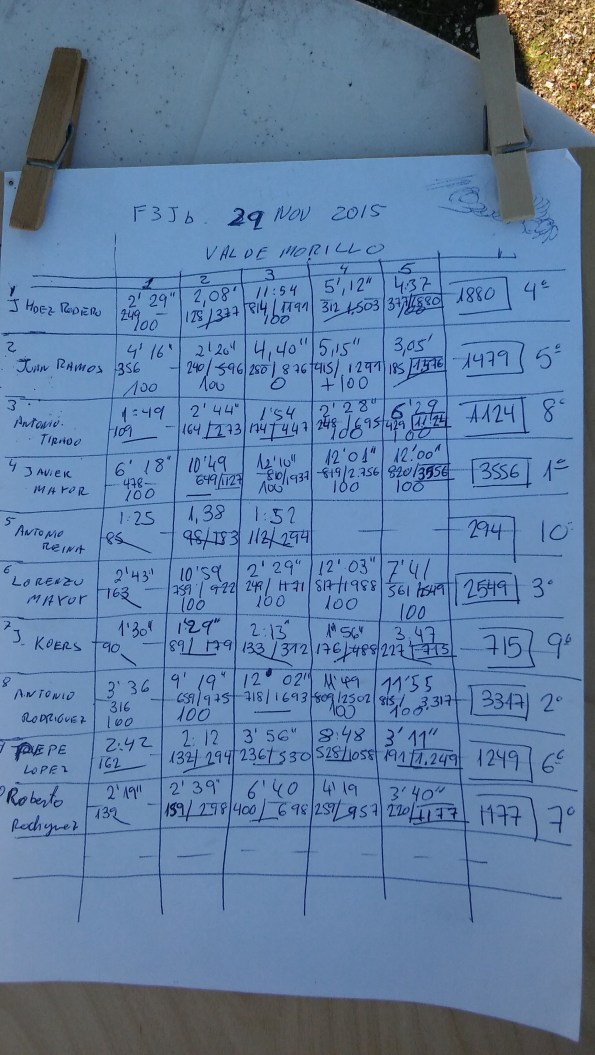 F3Jb. 29 NOV 2015
VALDEMORILLO
1 2 3 4 5
1 2' 29" 2,08' 11:54 5',12" 4:37
J HDEZ RODERO 249 128/377 814/1191 312 1,503 377/1880 1880 4º
100 100
2 4' 16" 2' 20" 4,40" 5,15" 3,05'
JUAN RAMOS 356 240/596 280/876 415/1291 185/1476 1479 5º
100 100 0 +100
3 1:49 2' 44" 1'54 2' 28" 6' 29
ANTONIO 109 164/273 174/447 248/695 429/1124 1124 8º
TIRADO 100 100
4 JAVIER 6' 18" 10'49 12'10" 12'01" 12'00"
MAYOR 478 649/1127 810/1937 819/2.756 820/3556 3556 1º
100 100 100 100
5 1:25 1,38 1:52 — —
ANTONIO 85 98/183 112/294 294 10
REINA
6 2'43" 10'59 2' 29" 12' 03" 7'41
LORENZO 163 759/922 249/1171 817/1988 561/2549 2549 3º
MAYOR 100 100 100 100
7 1'30" 1'29" 2:13" 1"56" 3,47
J. KOERS 90 89/179 133/312 176/488 227/715 715 9º
8 3' 36 9' 19" 12' 02" 11'49 11'55
ANTONIO 316 659/975 718/1693 809/2502 815/3317 3317 2º
RODRIGUEZ 100 100 100 100
PEPE 2:42 2:12 3' 56" 8:48 3' 11"
LOPEZ 162 132/294 236/530 528/1058 191/1.249 1249 6º
Roberto 2'19" 2' 39" 6' 40 4'19 3' 40"
Rodriguez 139 159/298 400/698 259/957 220/1177 1177 7º